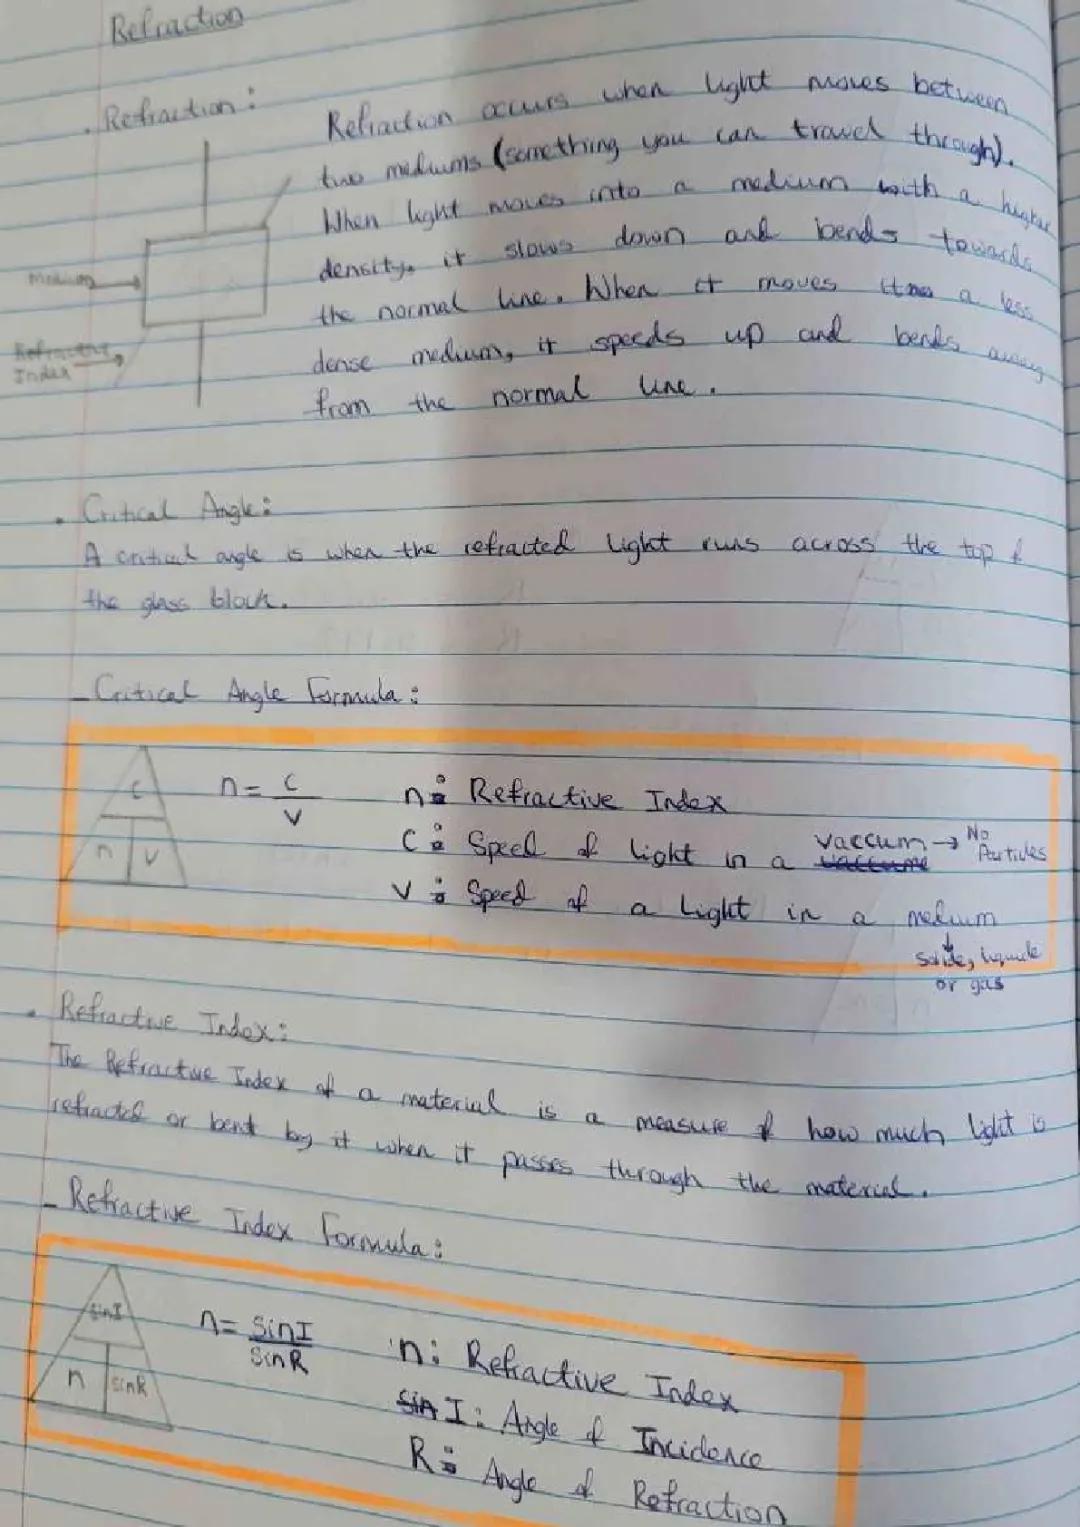 Refraction
. Refraction :
Refraction occurs when light moves between
two mediums (something you can travel through).
When light moves into a medium with a higher
density, it slows down and bends towards
the normal line. When it moves a less
dense medium, it speeds up and bends away
from the normal line.
Medium
Refractive
Index
. Critical Angle:
A critical angle is when the refracted light runs across the top of
the glass block.
- Critical Angle Formula:
C
n v
n = c
v
n: Refractive Index
C: Speed of light in a vaccum → No
Particles
v: Speed of a light in a medium
or gas
. Refractive Index:
The Refractive Index of a material is a measure of how much light is
refracted or bent by it when it passes through the material.
- Refractive Index Formula:
sinI
n sinR
n= SinI
SinR
n: Refractive Index
I: Angle of Incidence
R: Angle of Refraction